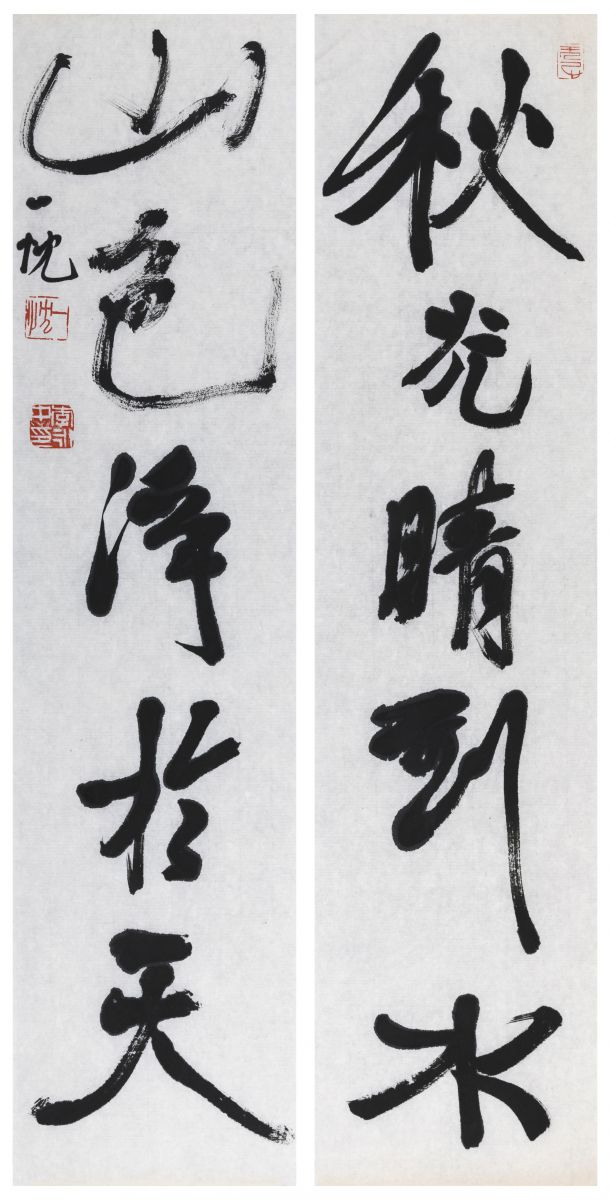 秋光晴到水
山色淨於天
一忱